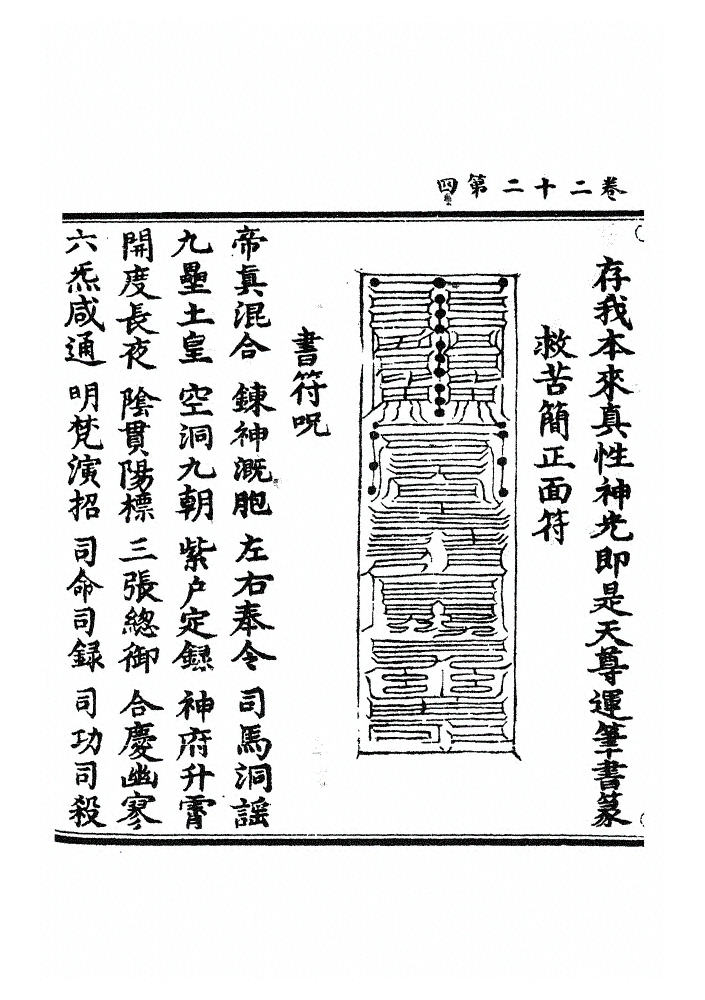 卷二十二第四
存我本來真性神光即是天尊運筆書篆
救苦簡正面符
書符呪
帝真混合　鍊神溉胞　左右奉令　司馬洞謡
九壘土皇　空洞九朝　紫户定錄　神府升霄
開度長夜　陰貫陽標　三張總御　合慶幽寥
六炁咸通　明梵演招　司命司録　司功司殺